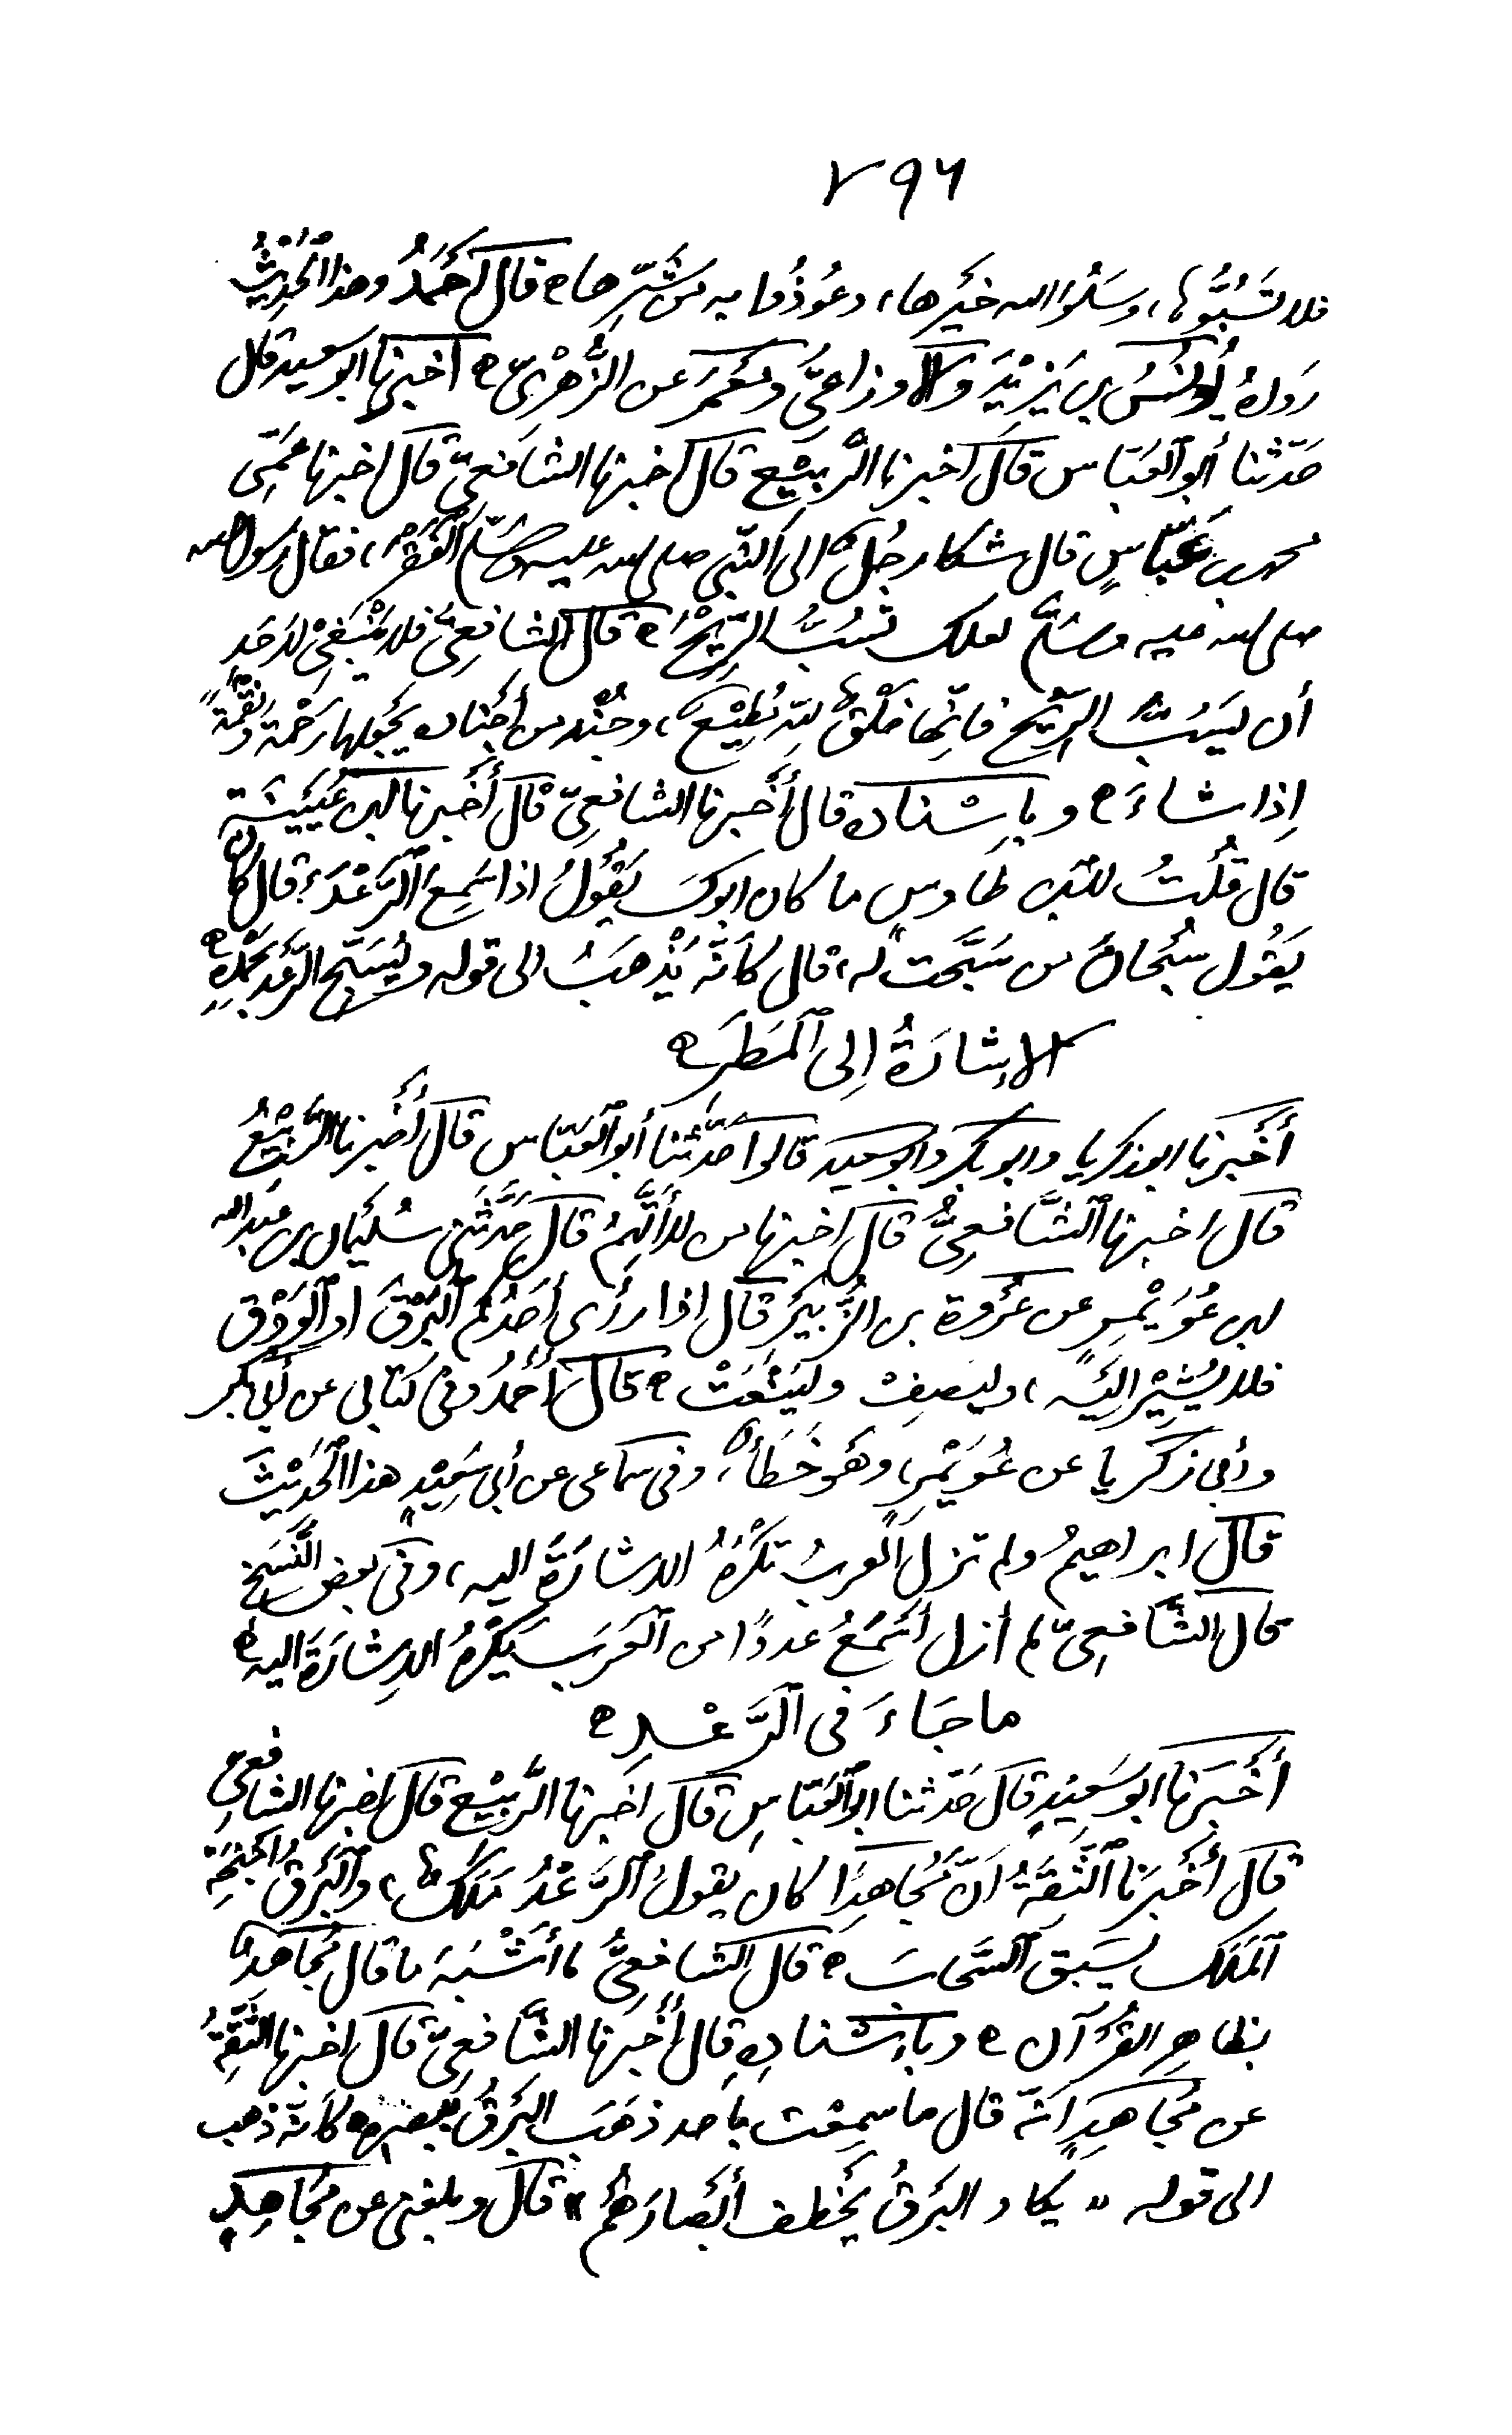 ٧٩٦
فلا تَسُبُّوها، وسَلُوا الله خيَرها، وعُوذُوا به من شَرِّها ه قال أحْمَدُ وهذا الحَدِيْثُ
رَواهُ يُونُسُ بن يَزِيْدَ والاوزاعيُّ ومَعْمَرَ عن الزُّهْرىّ ه اخبرنا ابو سعيد قال
حَدّثنا أبو العَبّاس قال اخبرنا الرَّبِيْع قال اخبرنا الشافعىّ قال اخبرنا عَمِّى
محمد بن عَبّاسٍ قال شكا رجُلٌ الى النّبى صلى الله عليه وسَلَّم الفَقْرَ، فقال رسول الله
صلى الله عليه وسَلَّم لعلك تَسُبُّ الرِّيْحَ ه قال الشافِعىُّ فلا يَنْبَغِىْ لاحَدٍ
أن يَسُبَّ الرِّيْحَ فانِّها خَلْقٌ لله مُطِيْعٌ، وجُنْد من أجْنادِه يَجْعَلها رَحْمَة ونِقْمَةً
إذا شاءَ ه وبإسْنادِه قال أخْبرنا الشافعىّ قال أخْبرنا ابن عُيَيْنَة
قال قلْتُ لابن طاوسٍ ما كان ابوكَ يَقُوْلُ اذا سَمِعَ الرَّعْدَ، قال كانَ
يَقُول سُبْحانَ من سَبَّحْتَ له، قال كأنّه يَذْهَبُ الى قوله ويُسَبّح الرَّعْد بحَمْدِهِ ه
الإشارَةُ إلى المَطَرِ ه
أخْبَرنا ابو زكريا وابو بكر وابو سعيد قالوا حَدّثنا أبو العَبّاس قال أخْبرنا الرَّبِيْعُ
قال اخبرنا الشَّافِعِىُّ قال اخبرنا من لا أتَّهِمُ قال حَدَّثَنِى سُلَيْمان بن عَبد الله
ابن عُوَيْمِرٍ عن عُرْوة بن الزُّبَيْرِ قال اذا رَأى أحَدُكم البَرْقَ او الوَدْق
فلا يُشِيْر اليَْهِ، وليَصِفْ وليَنْعَتْ ه قال أحْمَدُ وفى كتابى عن أبى بكر
وأبى زكريا عن عُوَيْمرٍ وهُو خَطَأٌ، وفى سماعى عن أبى سَعِيْدٍ هذا الحَدِيْثَ
قال ابراهيمُ ولم تزل العربُ تكْرَهُ الاشارَةَ اليه، وفى بعض النُّسَخِ
قال الشَّافعِىّ لم أزل أسْمَعُ عددًا من العَرَب يَكْرَهُ الإشارَةَ اليه ه
ما جَاءَ فى الرَّعْدِ ه
أخْبَرَنا ابو سَعِيْدٍ قال حَدّثنا ابو العَبّاسِ قال اخَبرنا الرَّبِيْع قال اخبرنا الشافِعىّ
قال أخْبَرَنا الثِّقَةُ أنّ مُجاهِدًا كان يقولُ الرَّعْدُ مَلَكٌ، والبَرْقُ أجْنِحَة
المَلَك يَسَبق السَّحابَ ه قال الشافِعىُّ ما أشْبَهَ ما قال مُجاهدٌ
بظاهرِ القُرْآن ه وبإسْنادِهِ قال أخْبَرنا الشَّافعِىّ قال اخبرنا الثِّقَةُ
عن مُجاهِدٍ أنّه قال ما سمِعْت باَحد ذهَبَ البَرْقُ ببصره كأنّه ذهب
الى قوله « يكاد البَرقُ يَخْطَف أبْصارَهُمْ » قال وبلغنى عن مُجاهِدٍ